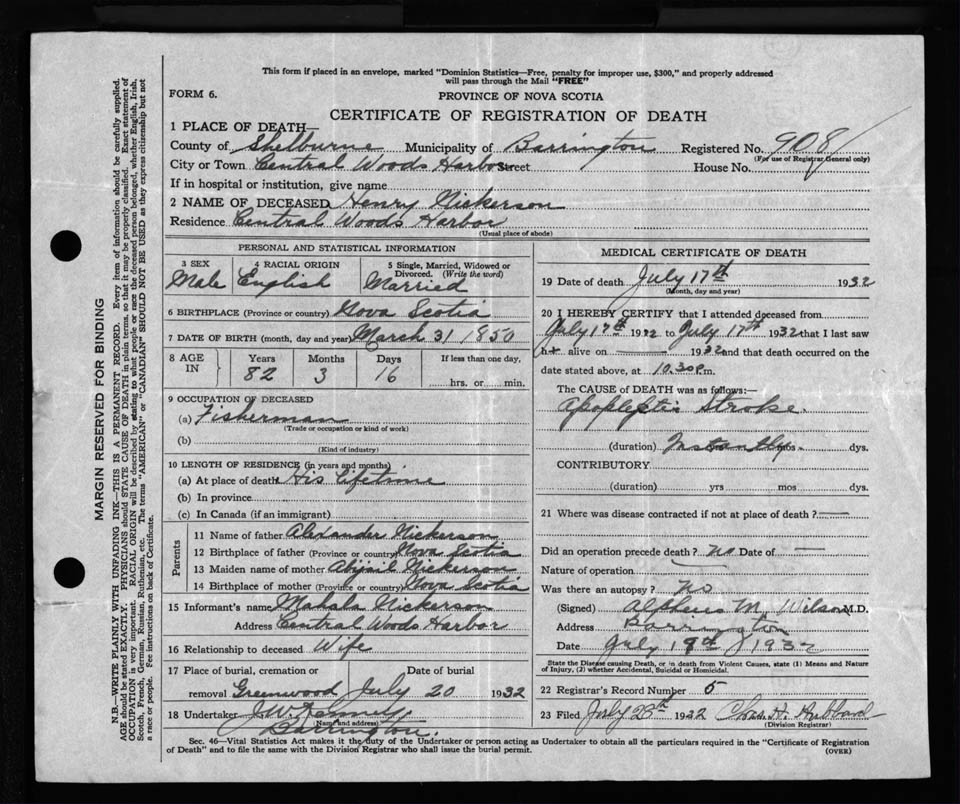 This form if placed in an envelope, marked "Dominion Statistics—Free, penalty for improper use, $300," and properly addressed
will pass through the Mail "FREE"
FORM 6.
PROVINCE OF NOVA SCOTIA
CERTIFICATE OF REGISTRATION OF DEATH
1 PLACE OF DEATH—
County of Shelburne Municipality of Barrington Registered No. 908
(For use of Registrar General only)
City or Town Central Woods Harbor Street House No.
If in hospital or institution, give name
2 NAME OF DECEASED Henry Nickerson
Residence Central Woods Harbor
(Usual place of abode)
PERSONAL AND STATISTICAL INFORMATION
3 SEX
Male
4 RACIAL ORIGIN
English
5 Single, Married, Widowed or
Divorced. (Write the word)
Married
6 BIRTHPLACE (Province or country) Nova Scotia
7 DATE OF BIRTH (month, day and year) March 31 1850
8 AGE IN Years Months Days If less than one day,
82 3 16 hrs. or min.
9 OCCUPATION OF DECEASED
(a) Fisherman
(Trade or occupation or kind of work)
(b)
(Kind of industry)
10 LENGTH OF RESIDENCE (in years and months)
(a) At place of death His Lifetime
(b) In province
(c) In Canada (if an immigrant)
Parents
11 Name of father Alexander Nickerson
12 Birthplace of father (Province or country) Nova Scotia
13 Maiden name of mother Abigail Nickerson
14 Birthplace of mother (Province or country) Nova Scotia
15 Informant's name Nickerson
Address Central Woods Harbor
16 Relationship to deceased Wife
17 Place of burial, cremation or Date of burial
removal Greenwood July 20 1932
18 Undertaker J. W.
(Name and address)
Barrington
MEDICAL CERTIFICATE OF DEATH
19 Date of death July 17th 1932
(Month, day and year)
20 I HEREBY CERTIFY that I attended deceased from
July 17th 1932 to July 17th 1932 that I last saw
alive on — 1932 and that death occurred on the
date stated above, at 10.30 P.m.
The CAUSE OF DEATH was as follows:—
Stroke.
(duration) Instantly mos. dys.
CONTRIBUTORY
(duration) yrs mos dys.
21 Where was disease contracted if not at place of death? —
Did an operation precede death? no Date of —
Nature of operation —
Was there an autopsy? no
(Signed) Alpheus M. Wilson M.D.
Address Barrington
Date July 1932
State the Disease causing Death, or in death from Violent Causes, state (1) Means and Nature
of Injury, (2) whether Accidental, Suicidal or Homicidal.
22 Registrar's Record Number 5
23 Filed July 28th 1932 Chas. H. Hubbard
(Division Registrar)
Sec. 46—Vital Statistics Act makes it the duty of the Undertaker or person acting as Undertaker to obtain all the particulars required in the "Certificate of Registration
of Death" and to file the same with the Division Registrar who shall issue the burial permit.
(OVER)
MARGIN RESERVED FOR BINDING
N.B.—WRITE PLAINLY WITH UNFADING INK—THIS IS A PERMANENT RECORD. Every item of information should be carefully supplied.
AGE should be stated EXACTLY. PHYSICIANS should STATE CAUSE OF DEATH in plain terms, so that it may be properly classified. Exact statement of
OCCUPATION is very important. RACIAL ORIGIN will be described by stating to what people or race the deceased person belonged, whether English, Irish,
Scotch, French, German, Russian, Ruthenian, etc. The terms "AMERICAN" or "CANADIAN" SHOULD NOT BE USED as they express citizenship but not
a race or people. Fee instructions on back of Certificate.